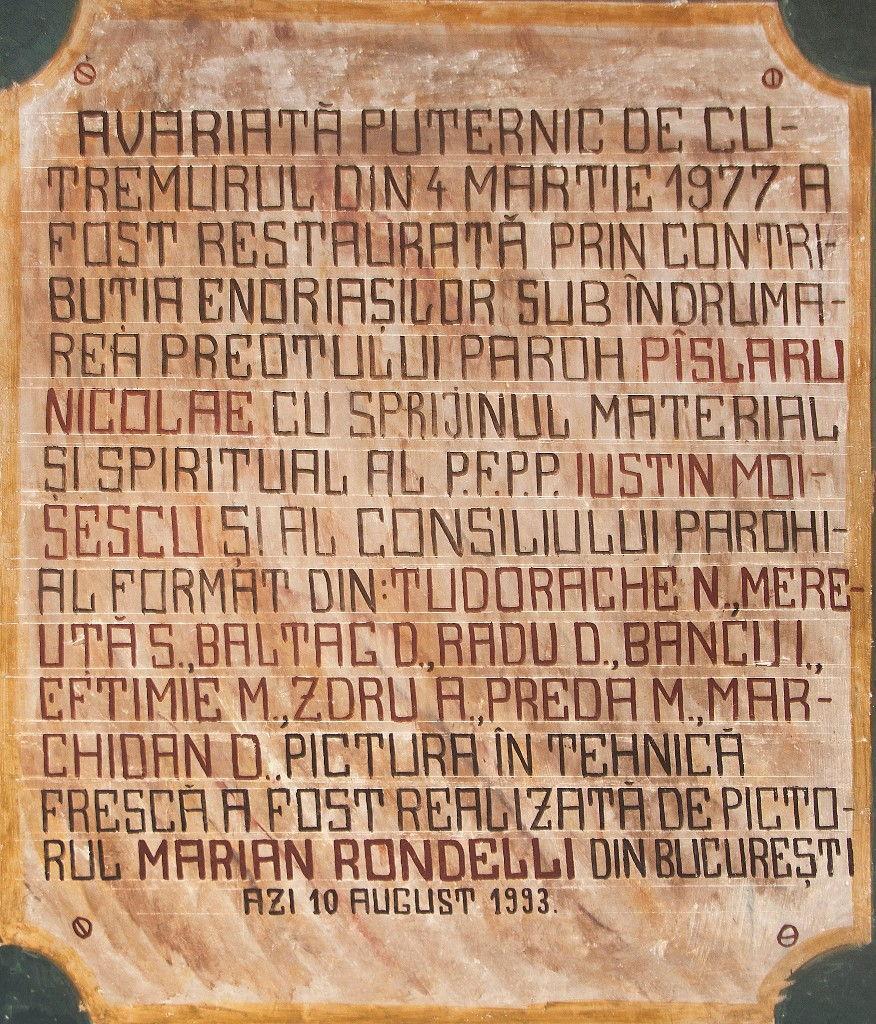 AVARIATĂ PUTERNIC DE CU-
TREMURUL DIN 4 MARTIE 1977 A
FOST RESTAURATĂ PRIN CONTRI-
BUȚIA ENORIAȘILOR SUB ÎNDRUMA-
REA PREOTULUI PAROH PÎSLARU
NICOLAE CU SPRIJINUL MATERIAL
ȘI SPIRITUAL AL P.F.P.P. IUSTIN MOI-
SESCU ȘI AL CONSILIULUI PAROHI-
AL FORMAT DIN: TUDORACHE N., MERE-
UȚĂ S., BALTAG D., RADU D., BANCU I.,
EFTIMIE M., ZDRU A., PREDA M., MAR-
CHIDAN D.. PICTURA ÎN TEHNICĂ
FRESCĂ A FOST REALIZATĂ DE PICTO-
RUL MARIAN RONDELLI DIN BUCUREȘTI
AZI 10 AUGUST 1993.